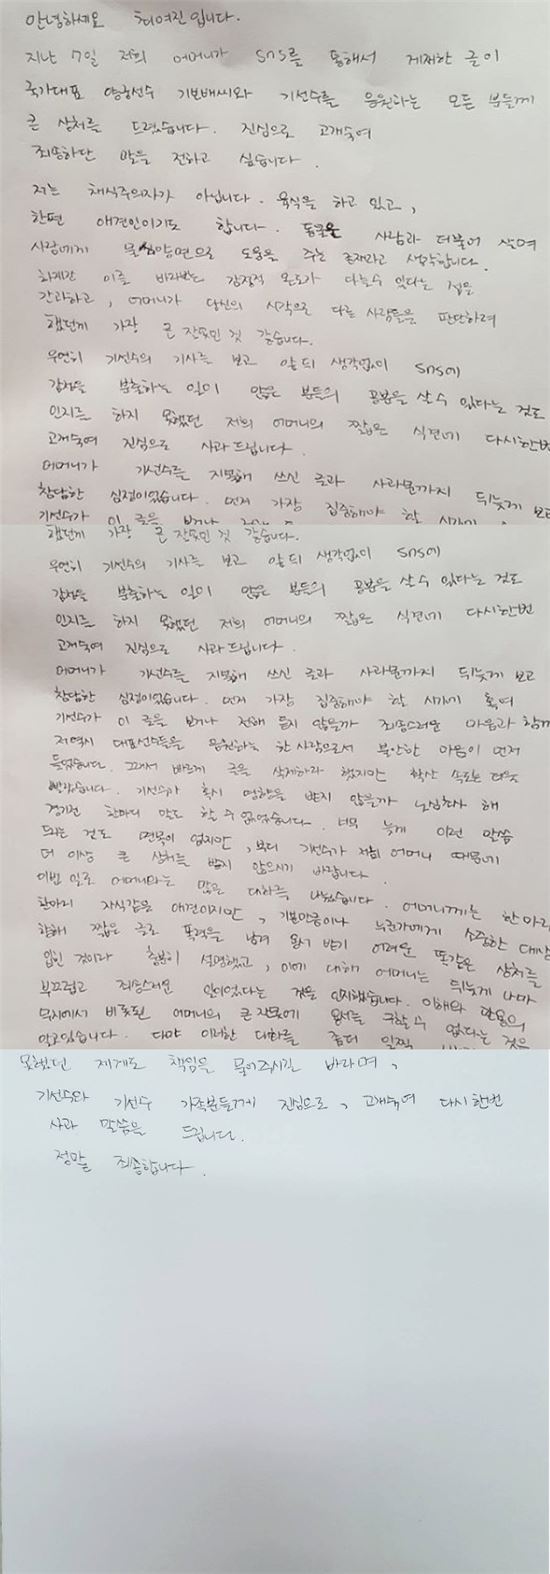 안녕하세요 최여진입니다.
지난 7일 저희 어머니가 SNS를 통해서 게재한 글이
국가대표 양궁선수 기보배씨와 기선수를 응원하는 모든 분들께
큰 상처를 드렸습니다. 진심으로 고개숙여
죄송하단 말을 전하고 싶습니다.
저는 채식주의자가 아닙니다. 육식을 하고 있고,
한편 애견인이기도 합니다. 동물은 사람과 더불어 살며
사람에게 물심양면으로 도움을 주는 존재라고 생각합니다.
허나 이를 바라보는 감정적 온도가 다를수 있다는 점을
간과하고, 어머니가 당신의 시각으로 다른 사람들을 판단하려
했던게 가장 큰 잘못인 것 같습니다.
우연히 기선수의 기사를 보고 앞뒤 생각없이 SNS에
감정을 분출하는 일이 많은 분들의 공분을 살수 있다는 것도
인지를 하지 못했던 저희 어머니의 짧은 식견에 다시한번
고개숙여 진심으로 사과드립니다.
어머니가 기선수를 지목해 쓰신 글과 사과문까지 뒤늦게 보고
참담한 심정이었습니다. 먼저 가장 집중해야 할 시기에
기선수가 이 글을 보거나
했던게 가장 큰 잘못인 것 같습니다.
우연히 기선수의 기사를 보고 앞뒤 생각없이 SNS에
감정을 분출하는 일이 많은 분들의 공분을 살수 있다는 것도
인지를 하지 못했던 저희 어머니의 짧은 식견에 다시한번
고개숙여 진심으로 사과드립니다.
어머니가 기선수를 지목해 쓰신 글과 사과문까지 뒤늦게 보고
참담한 심정이었습니다. 먼저 가장 집중해야 할 시기에 혹여
기선수가 이 글을 보거나 전해 듣지 않을까 죄송스러운 마음과 함께
저역시 대표선수들을 응원하는 한 사람으로서 불안한 마음이 먼저
들었습니다. 그래서 바르게 글을 삭제하라 했지만 확산 속도는 더욱
빨랐습니다. 기선수가 혹시 영향을 받지 않을까 노심초사 해
경기전 한마디 말도 할 수 없었습니다. 너무 늦게 이런 말씀
드리는 것도 면목이 없지만, 부디 기선수가 저희 어머니 때문에
더 이상 큰 상처를 받지 않으시기 바랍니다.
이번 일로 어머니와는 많은 대화를 나눴습니다. 어머니께는 한마리
한마리 자식같은 애견이지만, 기보배양궁이나 누군가에게 소중한 대상
향해 짧은 글로 폭력을 남겨 용서 받기 어려운 똑같은 상처를
입힌 것이라 충분히 설명했고, 이에 대해 어머니는 뒤늦게 나마
부끄럽고 죄송스러운 일이었다는 것을 인지했습니다. 이해와 관용의
무지에서 비롯된 어머니의 큰 잘못에 용서를 구할수 없다는 것을
알고있습니다. 다만 이러한 대화를 좀더 일찍
못했던 제게도 책임을 물어주시길 바라며,
기선수와 기선수 가족분들께 진심으로, 고개숙여 다시한번
사과 말씀을 드립니다.
정말 죄송합니다.